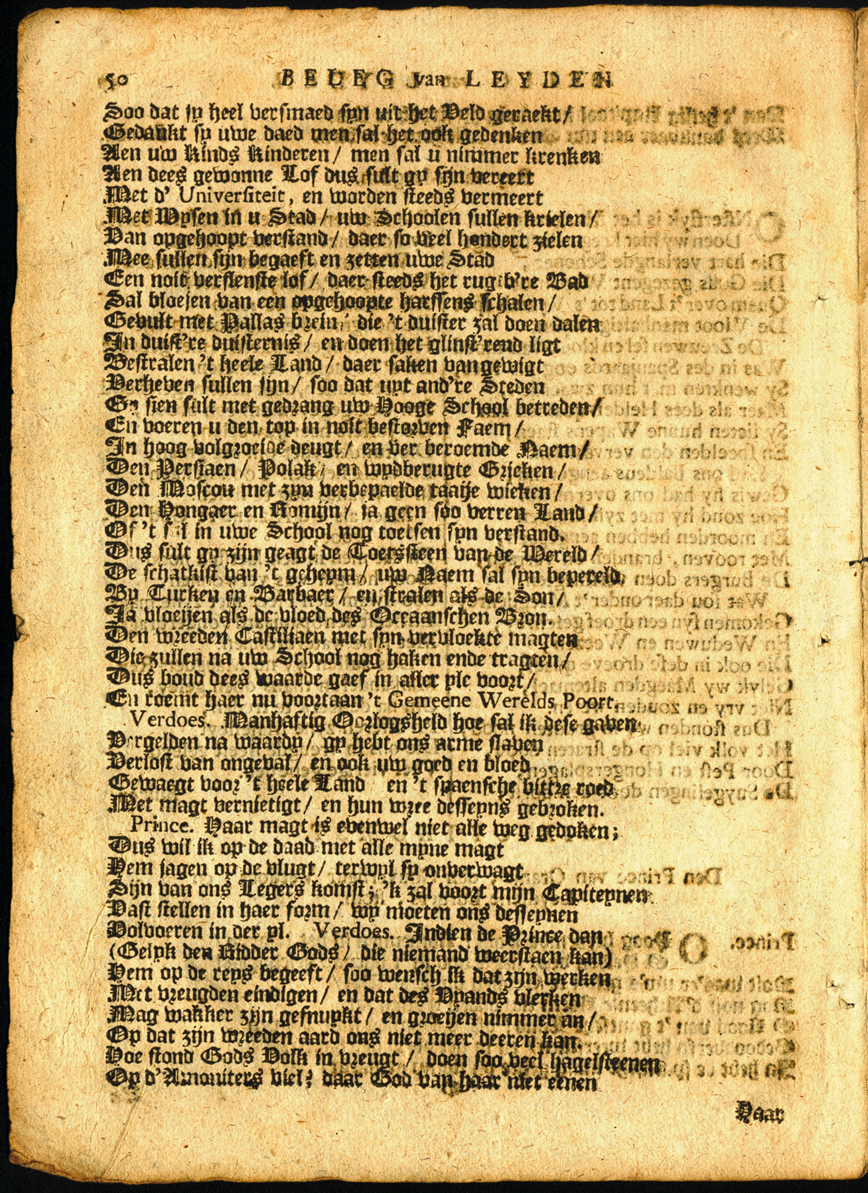 50 BELEG van LEYDEN
Soo dat sy heel versmaed syn uit het Veld geraekt/
Gedankt sy uwe daed men sal het ook gedenken
Aen uw Kinds Kinderen/ men sal u nimmer krenken
Aen dees gewonne Lof dus sult gy sijn vereert
Met d' Universiteit, en worden steeds vermeert
Met Wysen in u Stad/ uw Schoolen sullen krielen/
Van opgehoopt verstand/ daer so veel hondert zielen
Mee sullen sijn begaeft en zetten uwe Stad
Een noit verslenste lof/ daer steeds het rugb're Bad
Sal bloejen van een opgehoopte harssens schalen/
Gevult met Pallas brein, die 't duister zal doen dalen
In duist're duisternis/ en doen het glinst'rend ligt
Bestralen 't heele Land/ daer saken van gewigt
Verheven sullen sijn/ soo dat uyt and're Steden
Gy sien sult met gedrang uw Hooge School betreden/
En voeren u den top in noit bestorven Faem/
In hoog volgroeide deugt/ en ver beroemde Naem/
Den Persiaen/ Polak/ en wydberugte Grieken/
Den Moscou met zyn verbepaelde taaije wieken/
Den Hongaer en Romijn/ ja geen soo verren Land/
Of 't sal in uwe School nog toetsen syn verstand.
Dus sult gy zijn geagt de Toetssteen van de Wereld/
De schatkist van 't geheym/ uw Naem sal syn bepereld,
By Turken en Barbaer/ en stralen als de Son/
Ja vloeijen als de vloed des Oceaanschen Bron.
Den wreeden Castiliaen met syn vervloekte magten
Die zullen na uw School nog haken ende tragten/
Dus houd dees waarde gaef in aller yle voort/
En roemt haer nu voortaan 't Gemeene Werelds Poort.
Verdoes. Manhaftig Oorlogsheld hoe sal ik dese gaven
Vergelden na waardy/ gy hebt ons arme slaven
Verlost van ongeval/ en ook uw goed en bloed
Gewaegt voor 't heele Land en 't spaensche bittre roed
Met magt vernietigt/ en hun wree desseyns gebroken.
Prince. Haar magt is evenwel niet alle weg gedoken;
Dus wil ik op de daad met alle myne magt
Hem jagen op de vlugt/ terwyl sy onverwagt
Sijn van ons Legers komst; 'k zal voort mijn Capiteynen
Vast stellen in haer form/ wy moeten ons desseynen
Volvoeren in der yl. Verdoes. Indien de Prince dan
(Gelyk den Ridder Gods/ die niemand weerstaen kan)
Hem op de reys begeeft/ soo wensch ik dat zijn werken
Met vreugden eindigen/ en dat des Vyands vlerken
Mag wakker zijn gefnuykt/ en groeijen nimmer an/
Op dat zijn wreeden aard ons niet meer deeren kan.
Hoe stond Gods Volk in vreugt/ doen soo veel hagelsteenen
Op d'Amoniters viel? daar God van haar niet eenen
Haar